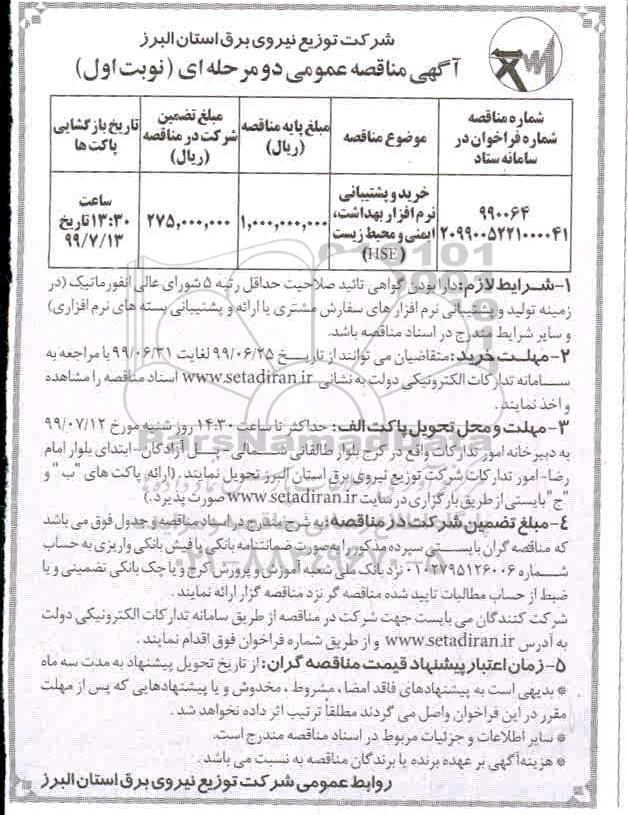 شرکت توزیع نیروی برق استان البرز
آگهی مناقصه عمومی دو مرحله ای (نوبت اول)
شماره مناقصه
شماره فراخوان در
سامانه ستاد
موضوع مناقصه
مبلغ پایه مناقصه
(ریال)
مبلغ تضمین
شرکت در مناقصه
(ریال)
تاریخ بازگشایی
پاکت ها
۹۹۰۰۶۴
۲۰۹۹۰۰۵۲۲۱۰۰۰۰۴۱
خرید و پشتیبانی
نرم افزار بهداشت،
ایمنی و محیط زیست
(HSE)
۱,۰۰۰,۰۰۰,۰۰۰
۲۷۵,۰۰۰,۰۰۰
ساعت
۱۳:۳۰ تاریخ
۹۹/۷/۱۳
۱-شرایط لازم: دارا بودن گواهی تائید صلاحیت حداقل رتبه ۵ شورای عالی انفورماتیک (در
زمینه تولید و پشتیبانی نرم افزار های سفارش مشتری یا ارائه و پشتیبانی بسته های نرم افزاری)
و سایر شرایط مندرج در اسناد مناقصه باشد.
۲-مهلت خرید: متقاضیان می توانند از تاریخ ۹۹/۰۶/۲۵ لغایت ۹۹/۰۶/۳۱ با مراجعه به
سامانه تدارکات الکترونیکی دولت به نشانی www.setadiran.ir اسناد مناقصه را مشاهده
و اخذ نمایند.
۳-مهلت و محل تحویل پاکت الف: حداکثر تا ساعت ۱۴:۳۰ روز شنبه مورخ ۹۹/۰۷/۱۲
به دبیرخانه امور تدارکات واقع در کرج بلوار طالقانی شمالی-پل آزادگان-ابتدای بلوار امام
رضا-امور تدارکات شرکت توزیع نیروی برق استان البرز تحویل نمایند. (ارائه پاکت های "ب" و
"ج" بایستی از طریق بارگزاری در سایت www.setadiran.ir صورت پذیرد.)
۴-مبلغ تضمین شرکت در مناقصه: به شرح مندرج در اسناد مناقصه و جدول فوق می باشد
که مناقصه گران بایستی سپرده مذکور را به صورت ضمانتنامه بانکی یا فیش بانکی واریزی به حساب
شماره ۰۱۰۲۷۹۵۱۲۶۰۰۶ نزد بانک ملی شعبه آموزش و پرورش کرج و یا چک بانکی تضمینی و یا
ضبط از حساب مطالبات تایید شده مناقصه گر نزد مناقصه گزار ارائه نمایند.
شرکت کنندگان می بایست جهت شرکت در مناقصه از طریق سامانه تدارکات الکترونیکی دولت
به آدرس www.setadiran.ir و از طریق شماره فراخوان فوق اقدام نمایند.
۵-زمان اعتبار پیشنهاد قیمت مناقصه گران: از تاریخ تحویل پیشنهاد به مدت سه ماه
* بدیهی است به پیشنهادهای فاقد امضا، مشروط، مخدوش و یا پیشنهادهایی که پس از مهلت
مقرر در این فراخوان واصل می گردند مطلقاً ترتیب اثر داده نخواهد شد.
* سایر اطلاعات و جزئیات مربوط در اسناد مناقصه مندرج است.
* هزینه آگهی بر عهده برنده یا برندگان مناقصه به نسبت می باشد.
روابط عمومی شرکت توزیع نیروی برق استان البرز
ParsNamadData